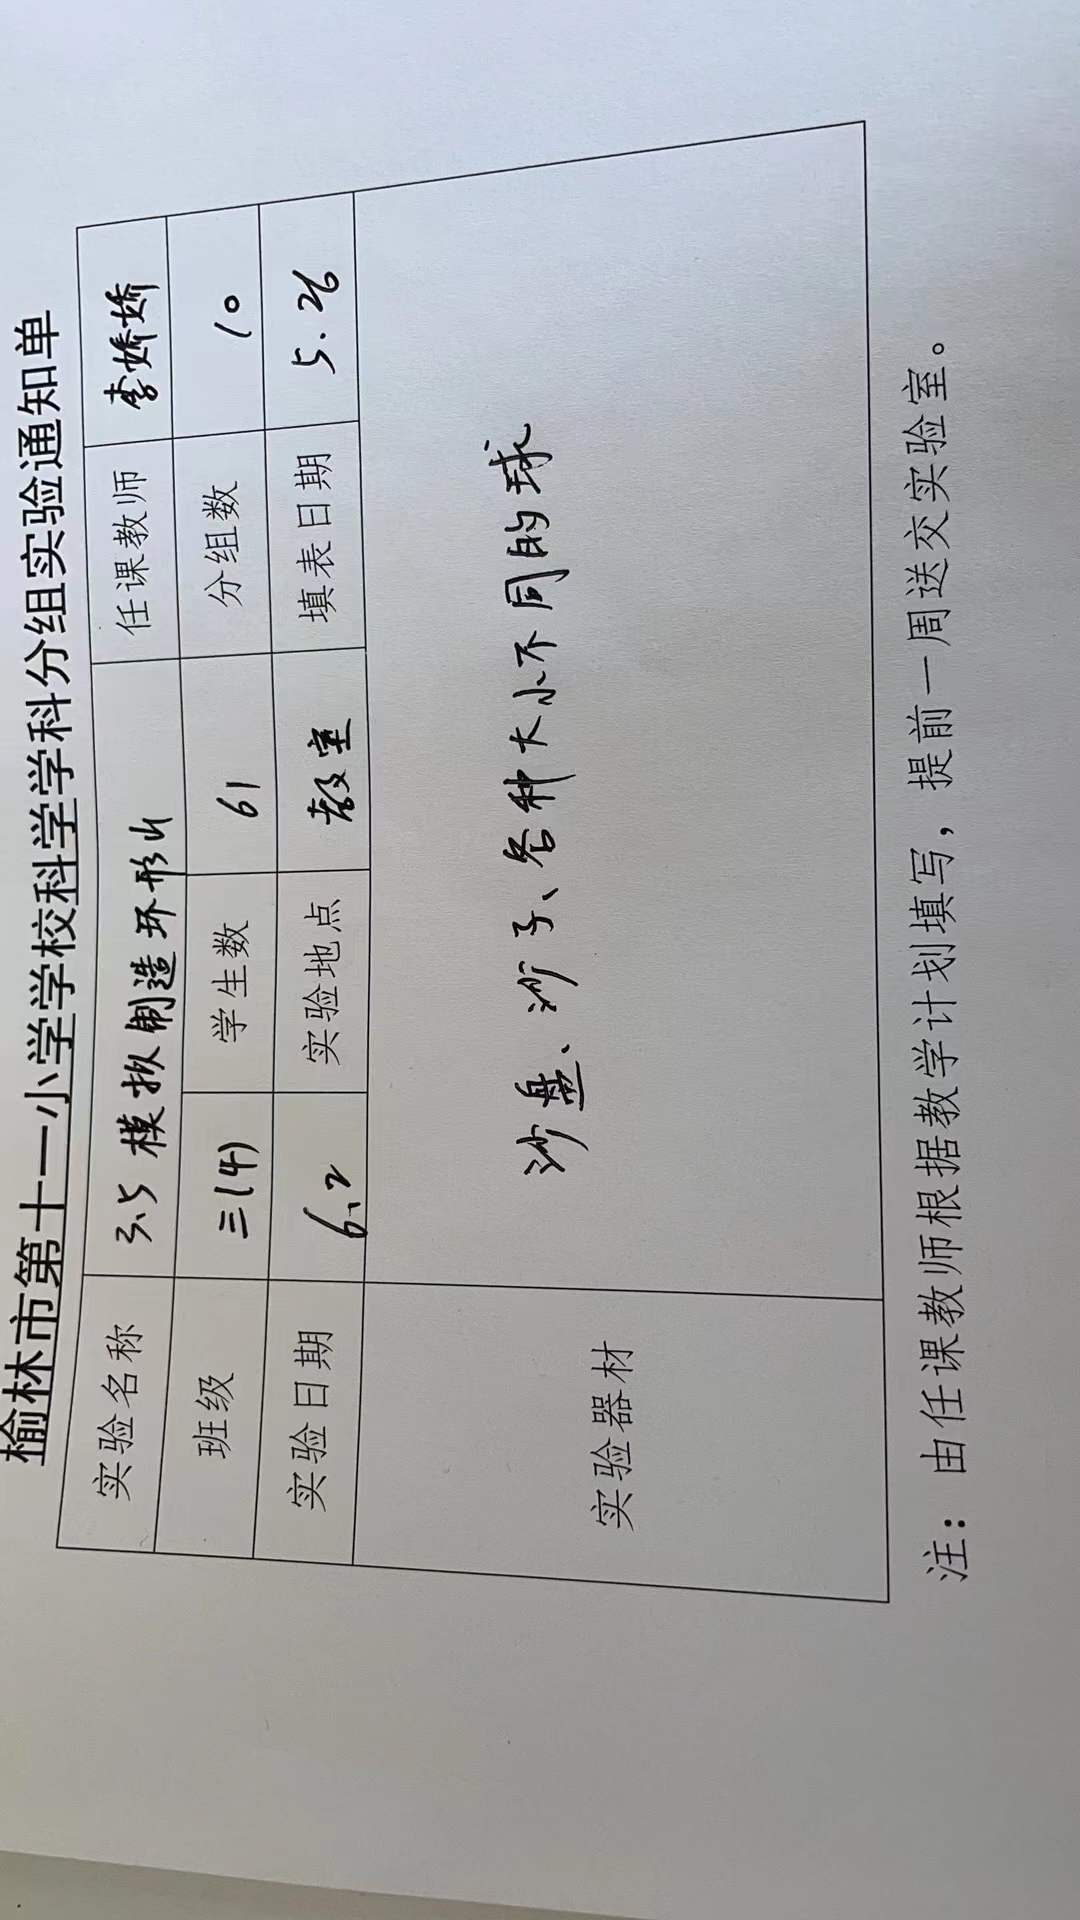 榆林市第十一小学学校科学学科分组实验通知单
实验名称 3.5 模拟制造环形山 任课教师 李娇娇
班级 三(4) 学生数 61 分组数 10
实验日期 6.2 实验地点 教室 填表日期 5.26
实验器材 沙盘、沙子、各种大小不同的球
注：由任课教师根据教学计划填写，提前一周送交实验室。